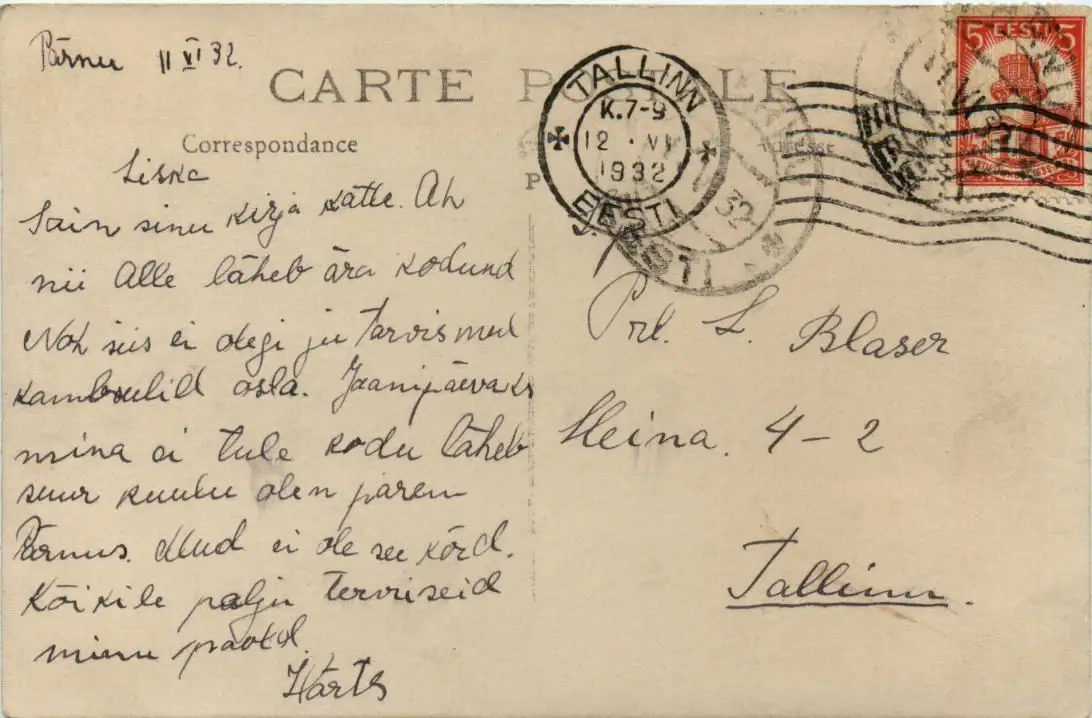 Pärnu 11 VI 32.
CARTE POSTALE
Correspondance
Adresse
TALLINN
K.7-9
12 · VI
1932
EESTI
32
EESTI
5 EESTI 5
Liska
Sain sinu kirja kätte. Ah
nii Alle läheb ära kodund
Noh siis ei olegi ju tarvis mul
osta. Jaanipäevaks
mina ei tule kodu läheb
suur kuulu olen parem
Pärnus. Muud ei ole see kõrd.
Kõikile palju terviseid
minu poolt
Prl. L. Blaser
Heina. 4-2
Tallinn.